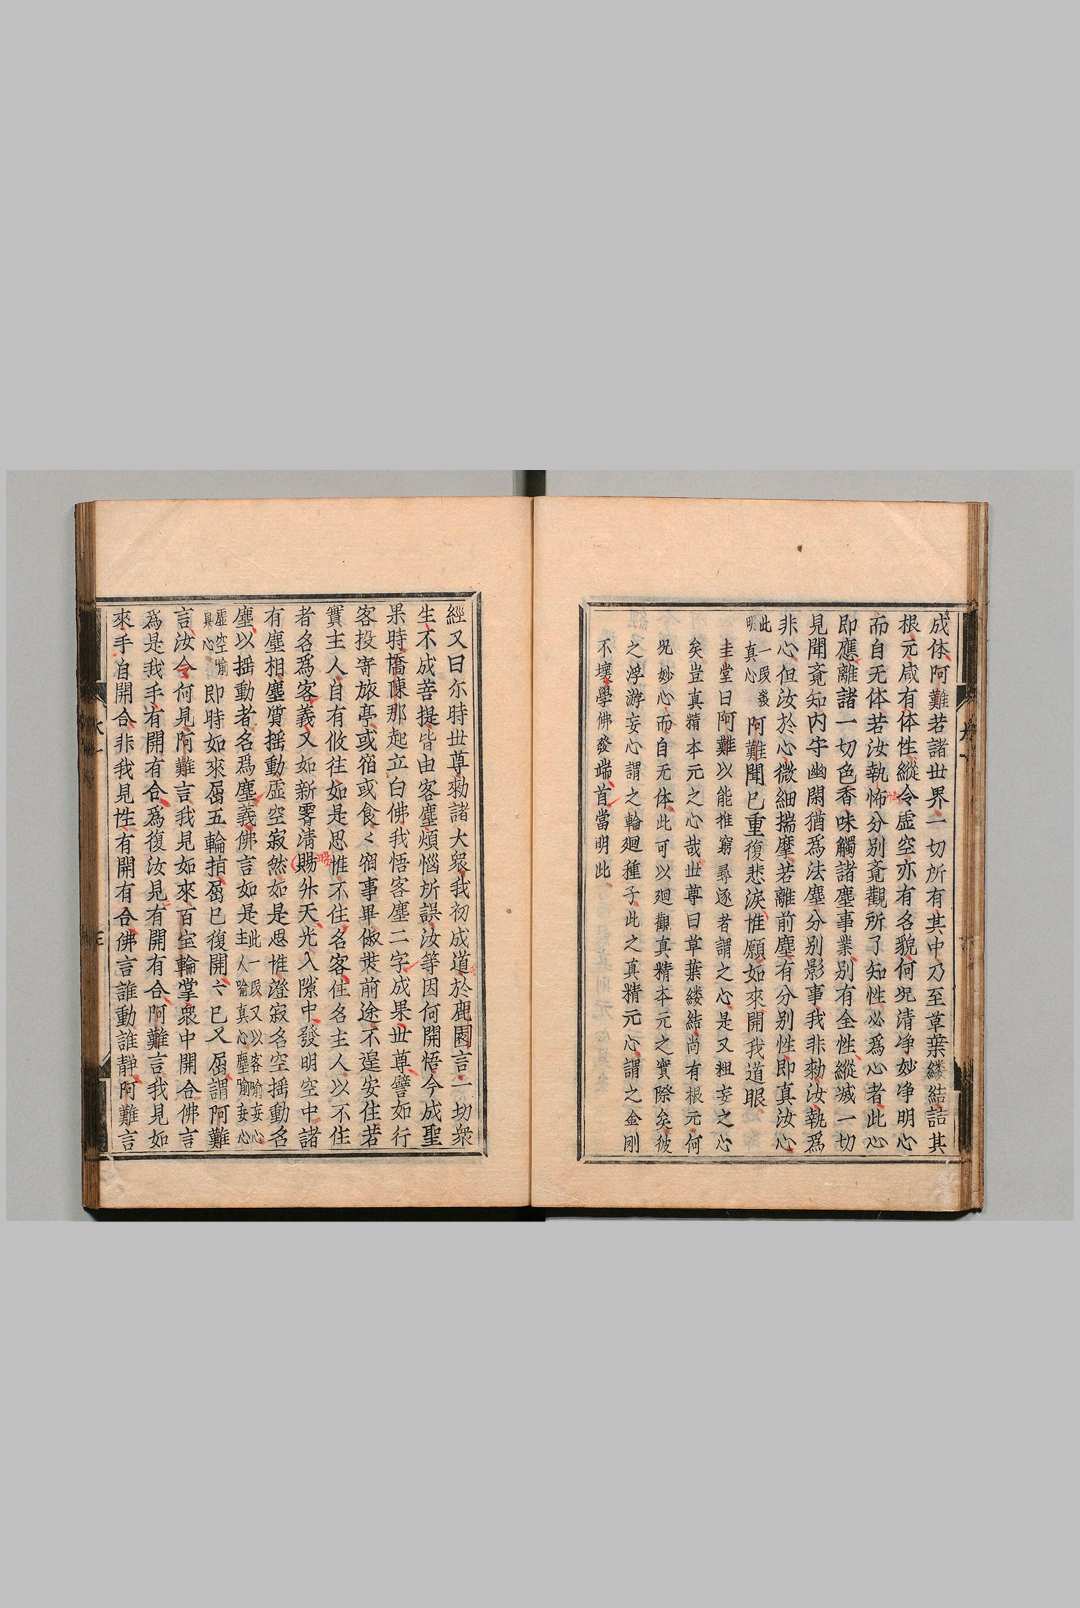 成体阿難若諸世界一切所有其中乃至草葉縷結詰其
根元咸有体性縱令虚空亦有名貌何况清淨妙净明心
而自无体若汝執恡分別覺觀所了知性必爲心者此心
即應離諸一切色香味觸諸塵事業別有全性縱滅一切
見聞覺知内守幽閑猶爲法塵分別影事我非勑汝執爲
非心但汝於心微細揣摩若離前塵有分別性即真汝心
此一段發
明真心
阿難聞已重復悲淚惟願如來開我道眼
圭堂曰阿難以能推窮尋逐者謂之心是又粗妄之心
矣豈真精本元之心哉世尊曰草葉縷結尚有根元何
况妙心而自无体此可以廻觀真精本元之實際矣彼
之浮游妄心謂之輪廻種子此之真精元心謂之金剛
不壞學佛發端首當明此
經又曰尒時世尊勑諸大衆我初成道於鹿園言一切衆
生不成菩提皆由客塵煩惱所誤汝等因何開悟今成聖
果時憍陳那起立白佛我悟客塵二字成果世尊譬如行
客投寄旅亭或宿或食〻宿事畢俶裝前途不遑安住若
實主人自有攸往如是思惟不住名客住名主人以不住
者名爲客義又如新霽清賜外天光入隙中發明空中諸
有塵相塵質揺動虚空寂然如是思惟澄寂名空揺動名
塵以揺動者名爲塵義佛言如是
此一段又以客喻妄心
主人喻真心塵喻妄心
虚空喻
真心
即時如來屈五輪指屈已復開〻已又屈謂阿難
言汝令何見阿難言我見如來百宝輪掌衆中開合佛言
爲是我手有開有合爲復汝見有開有合阿難言我見如
來手自開合非我見性有開有合佛言誰動誰靜阿難言